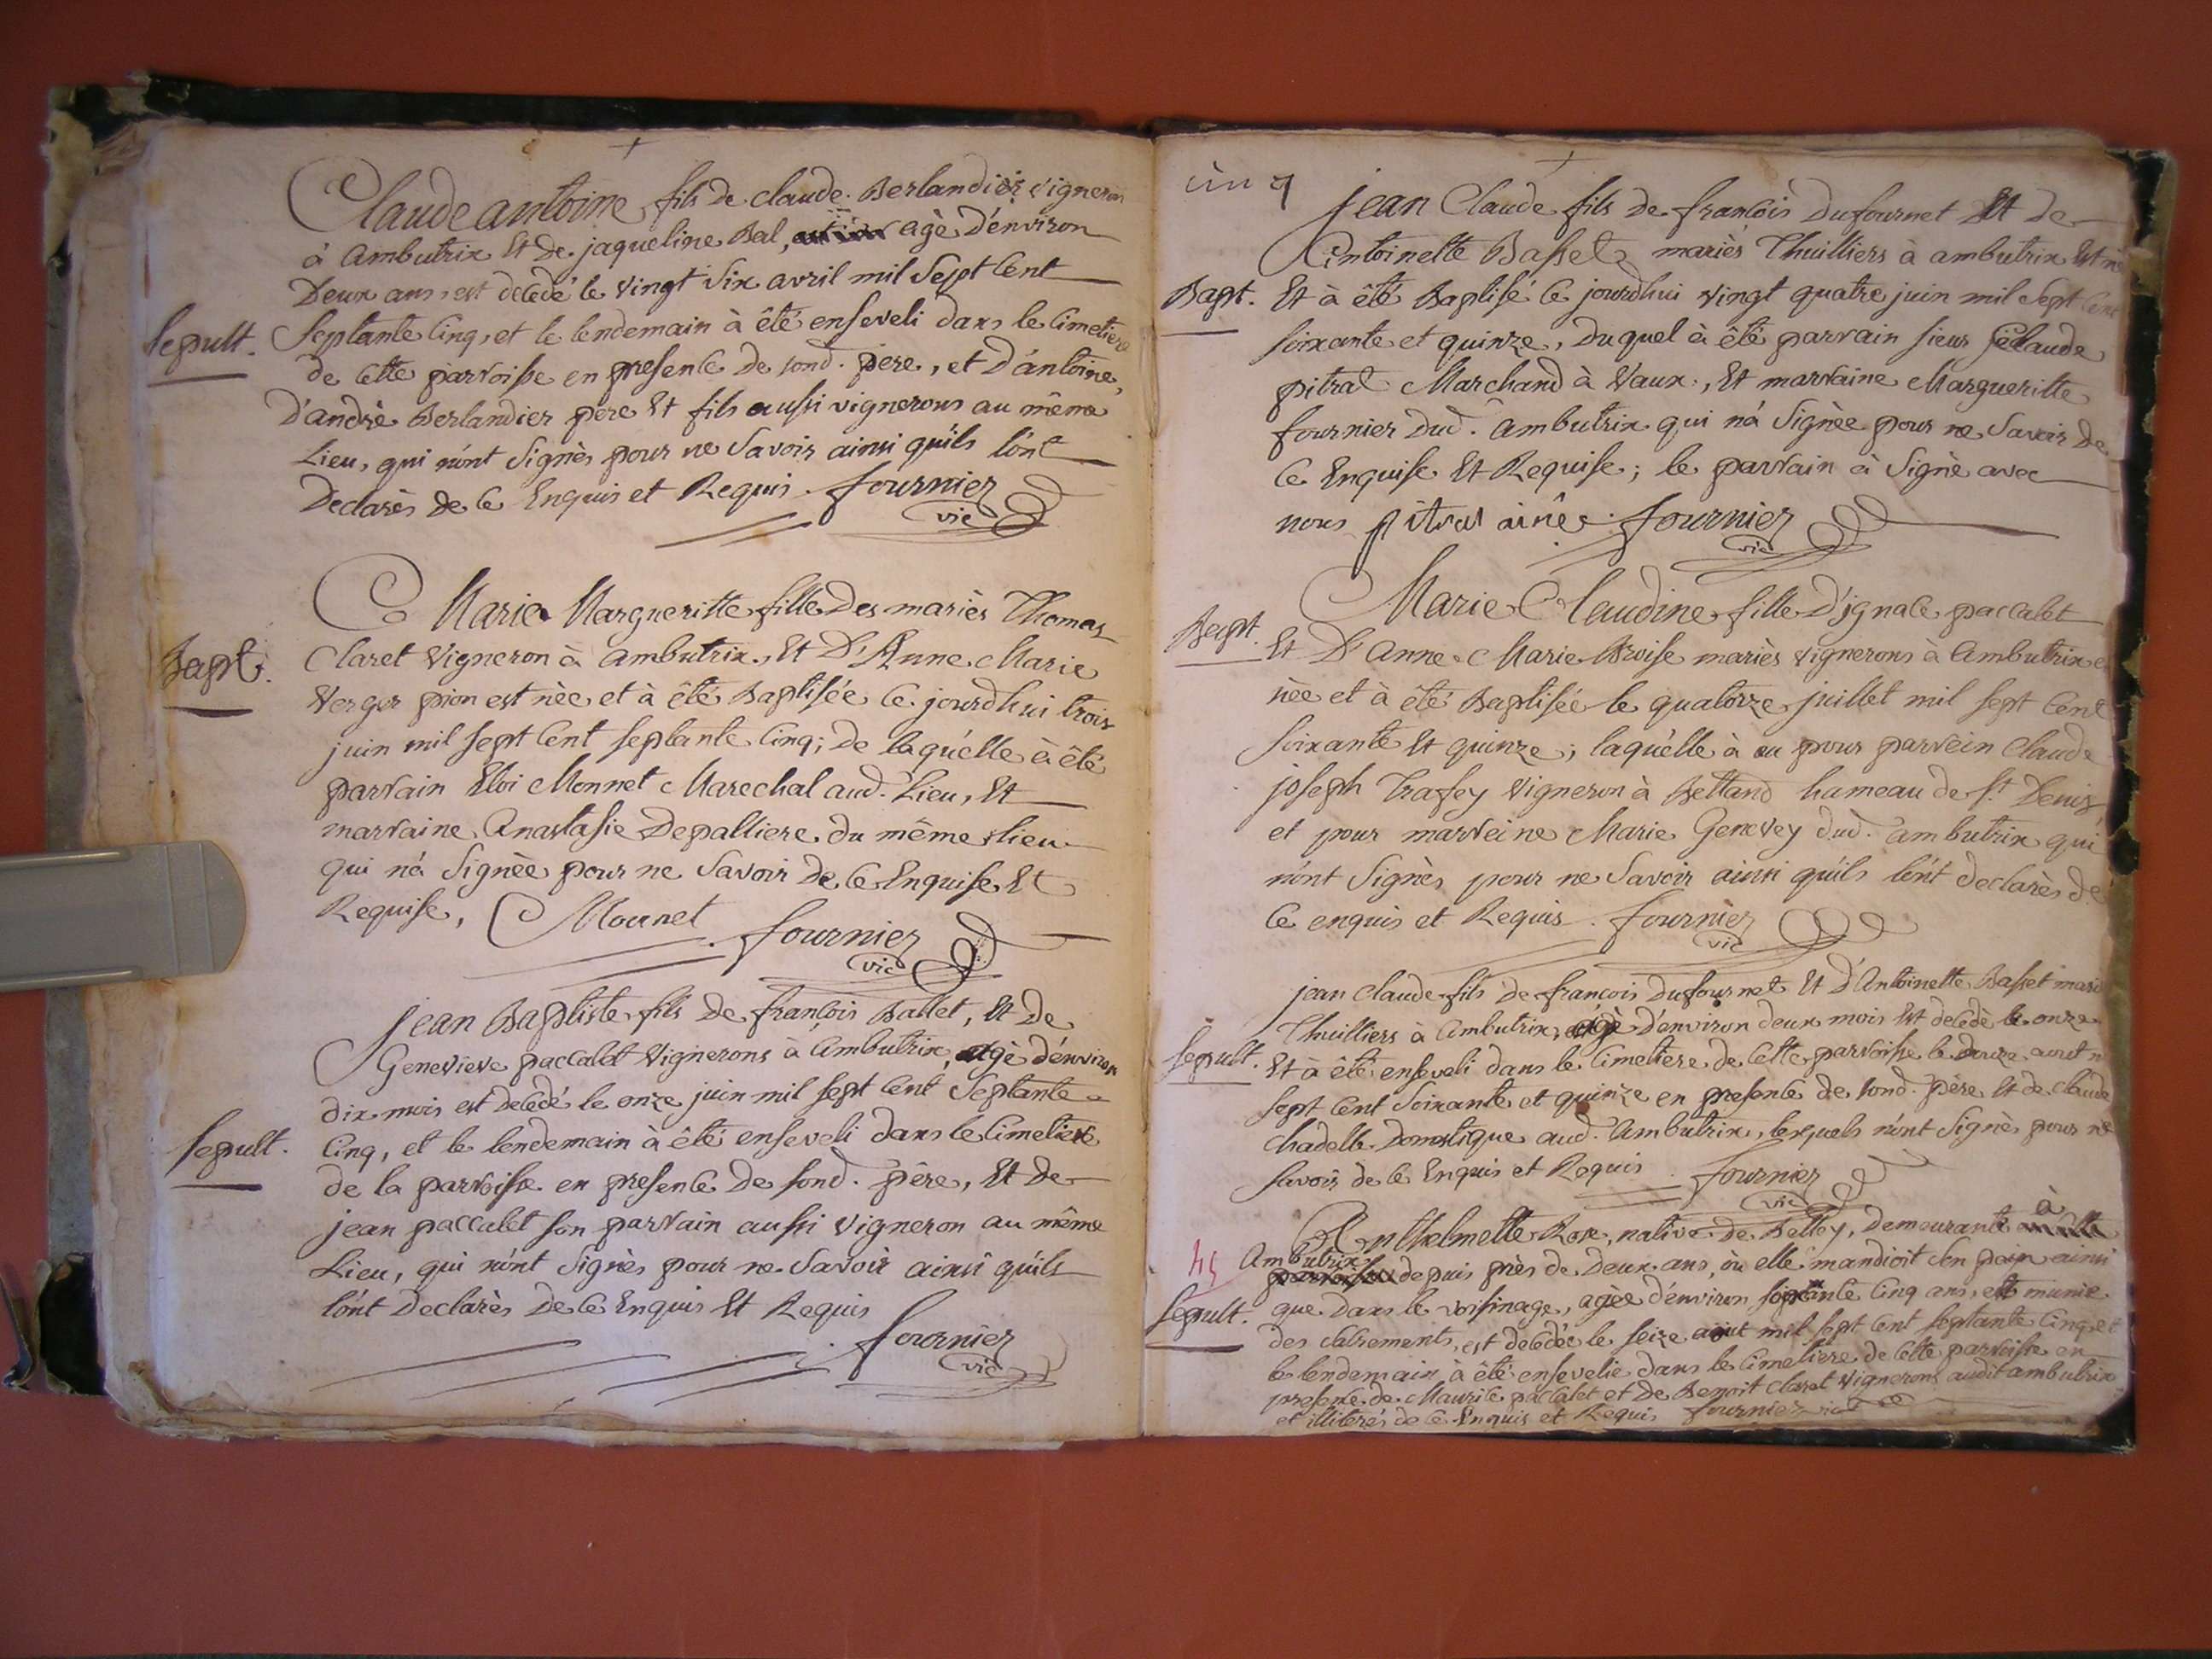 Claude antoine fils de claude Berlandier vigneron
à Ambutrix Et de jaqueline Bal, agè d'environ
Deux ans, est decedé le vingt six avril mil Sept Cent
Sepult. Septante Cinq, et le lendemain à été enseveli dans le Cimetiere
de Cette parroisse en presence de sond. pere, et D'antoine,
D'andrè Berlandier pere Et fils aussi vignerons au même
Lieu, qui n'ont Signès pour ne Savoir ainsi qu'ils l'ont
Declarès de Ce Enquis et Requis. fournier
vic
Marie Margueritte fille Des mariès Thomas
Bapt. Claret Vigneron à Ambutrix, Et D'Anne Marie
Verger pion est nèe et à été Baptisée Ce jourdhui trois
juin mil sept Cent septante Cinq; de laquelle à êté
parrain Eloi Monnet Marechal aud. Lieu, Et
marraine Anastasie Depalliere du même lieu
qui n'a Signèe pour ne Savoir de Ce Enquise Et
Requise, Mounet fournier
vic
jean Baptiste fils de françois Ballet, Et de
Genevieve paccalet Vignerons à Ambutrix, agè d'environ
dix mois est decedé le onze juin mil sept Cent Septante
Sepult. Cinq, et le lendemain à été enseveli dans le Cimetiere
de la parroisse en presence de sond. père, Et de
jean paccalet son parrain aussi vigneron au même
Lieu, qui n'ont Signès pour ne Savoir ainsi qu'ils
l'ont Declarès de Ce Enquis Et Requis
fournier
vic
jean Claude fils de francois Dufournet Et de
Antoinette Basset mariès Thuilliers à ambutrix Est né
Bapt. Et à été Baptisé Ce jourdhui vingt quatre juin mil Sept Cent
soixante et quinze, Duquel à été parrain sieur Claude
pitrat Marchand à Vaux, Et marraine Margueritte
fournier dud. ambutrix qui n'a Signèe pour ne Savoir De
Ce Enquise Et Requise; le parrain à Signè avec
nous pitrat ainé. fournier
vic
Marie Claudine fille D'ignace paccalet
Bapt. Et D'Anne Marie Broise mariès vignerons à Ambutrix
nèe et à été Baptisée le quatorze juillet mil sept Cent
soixante Et quinze; laquelle à eu pour parrein Claude
joseph Trafey Vigneron à Bettand hameau de St Denis
et pour marreine Marie Genevey dud. ambutrix qui
n'ont Signès pour ne Savoir ainsi qu'ils l'ont declarès de
Ce enquis et Requis. fournier
vic
jean Claude fils de françois Dufournet Et D'Antoinette Basset
Thuilliers à Ambutrix, agè d'environ deux mois Est decedè le onze
Sepult. Et à été enseveli dans le Cimetiere de Cette parroisse le douze aout
sept Cent Soixante et quinze en presence de sond. père Et de claude
Chadelle Domestique aud. Ambutrix, lesquels n'ont Signès pour ne
Savoir de Ce Enquis et Requis. fournier
vic
Anthelmette Rose, native de Belley, Demeurante à
45 Ambutrix depuis près de Deux ans, où elle mandioit son pain ainsi
Sepult. que Dans le voisinage, agèe d'environ soixante Cinq ans, et munie
des Sacrements, est decedée le seize aout mil sept Cent Septante Cinq et
le lendemain à été ensevelie dans le Cimetiere de Cette parroisse en
presence de Maurice paccalet et de Benoit Claret Vignerons audit ambutrix
et illiterés de Ce Enquis et Requis fournier vic